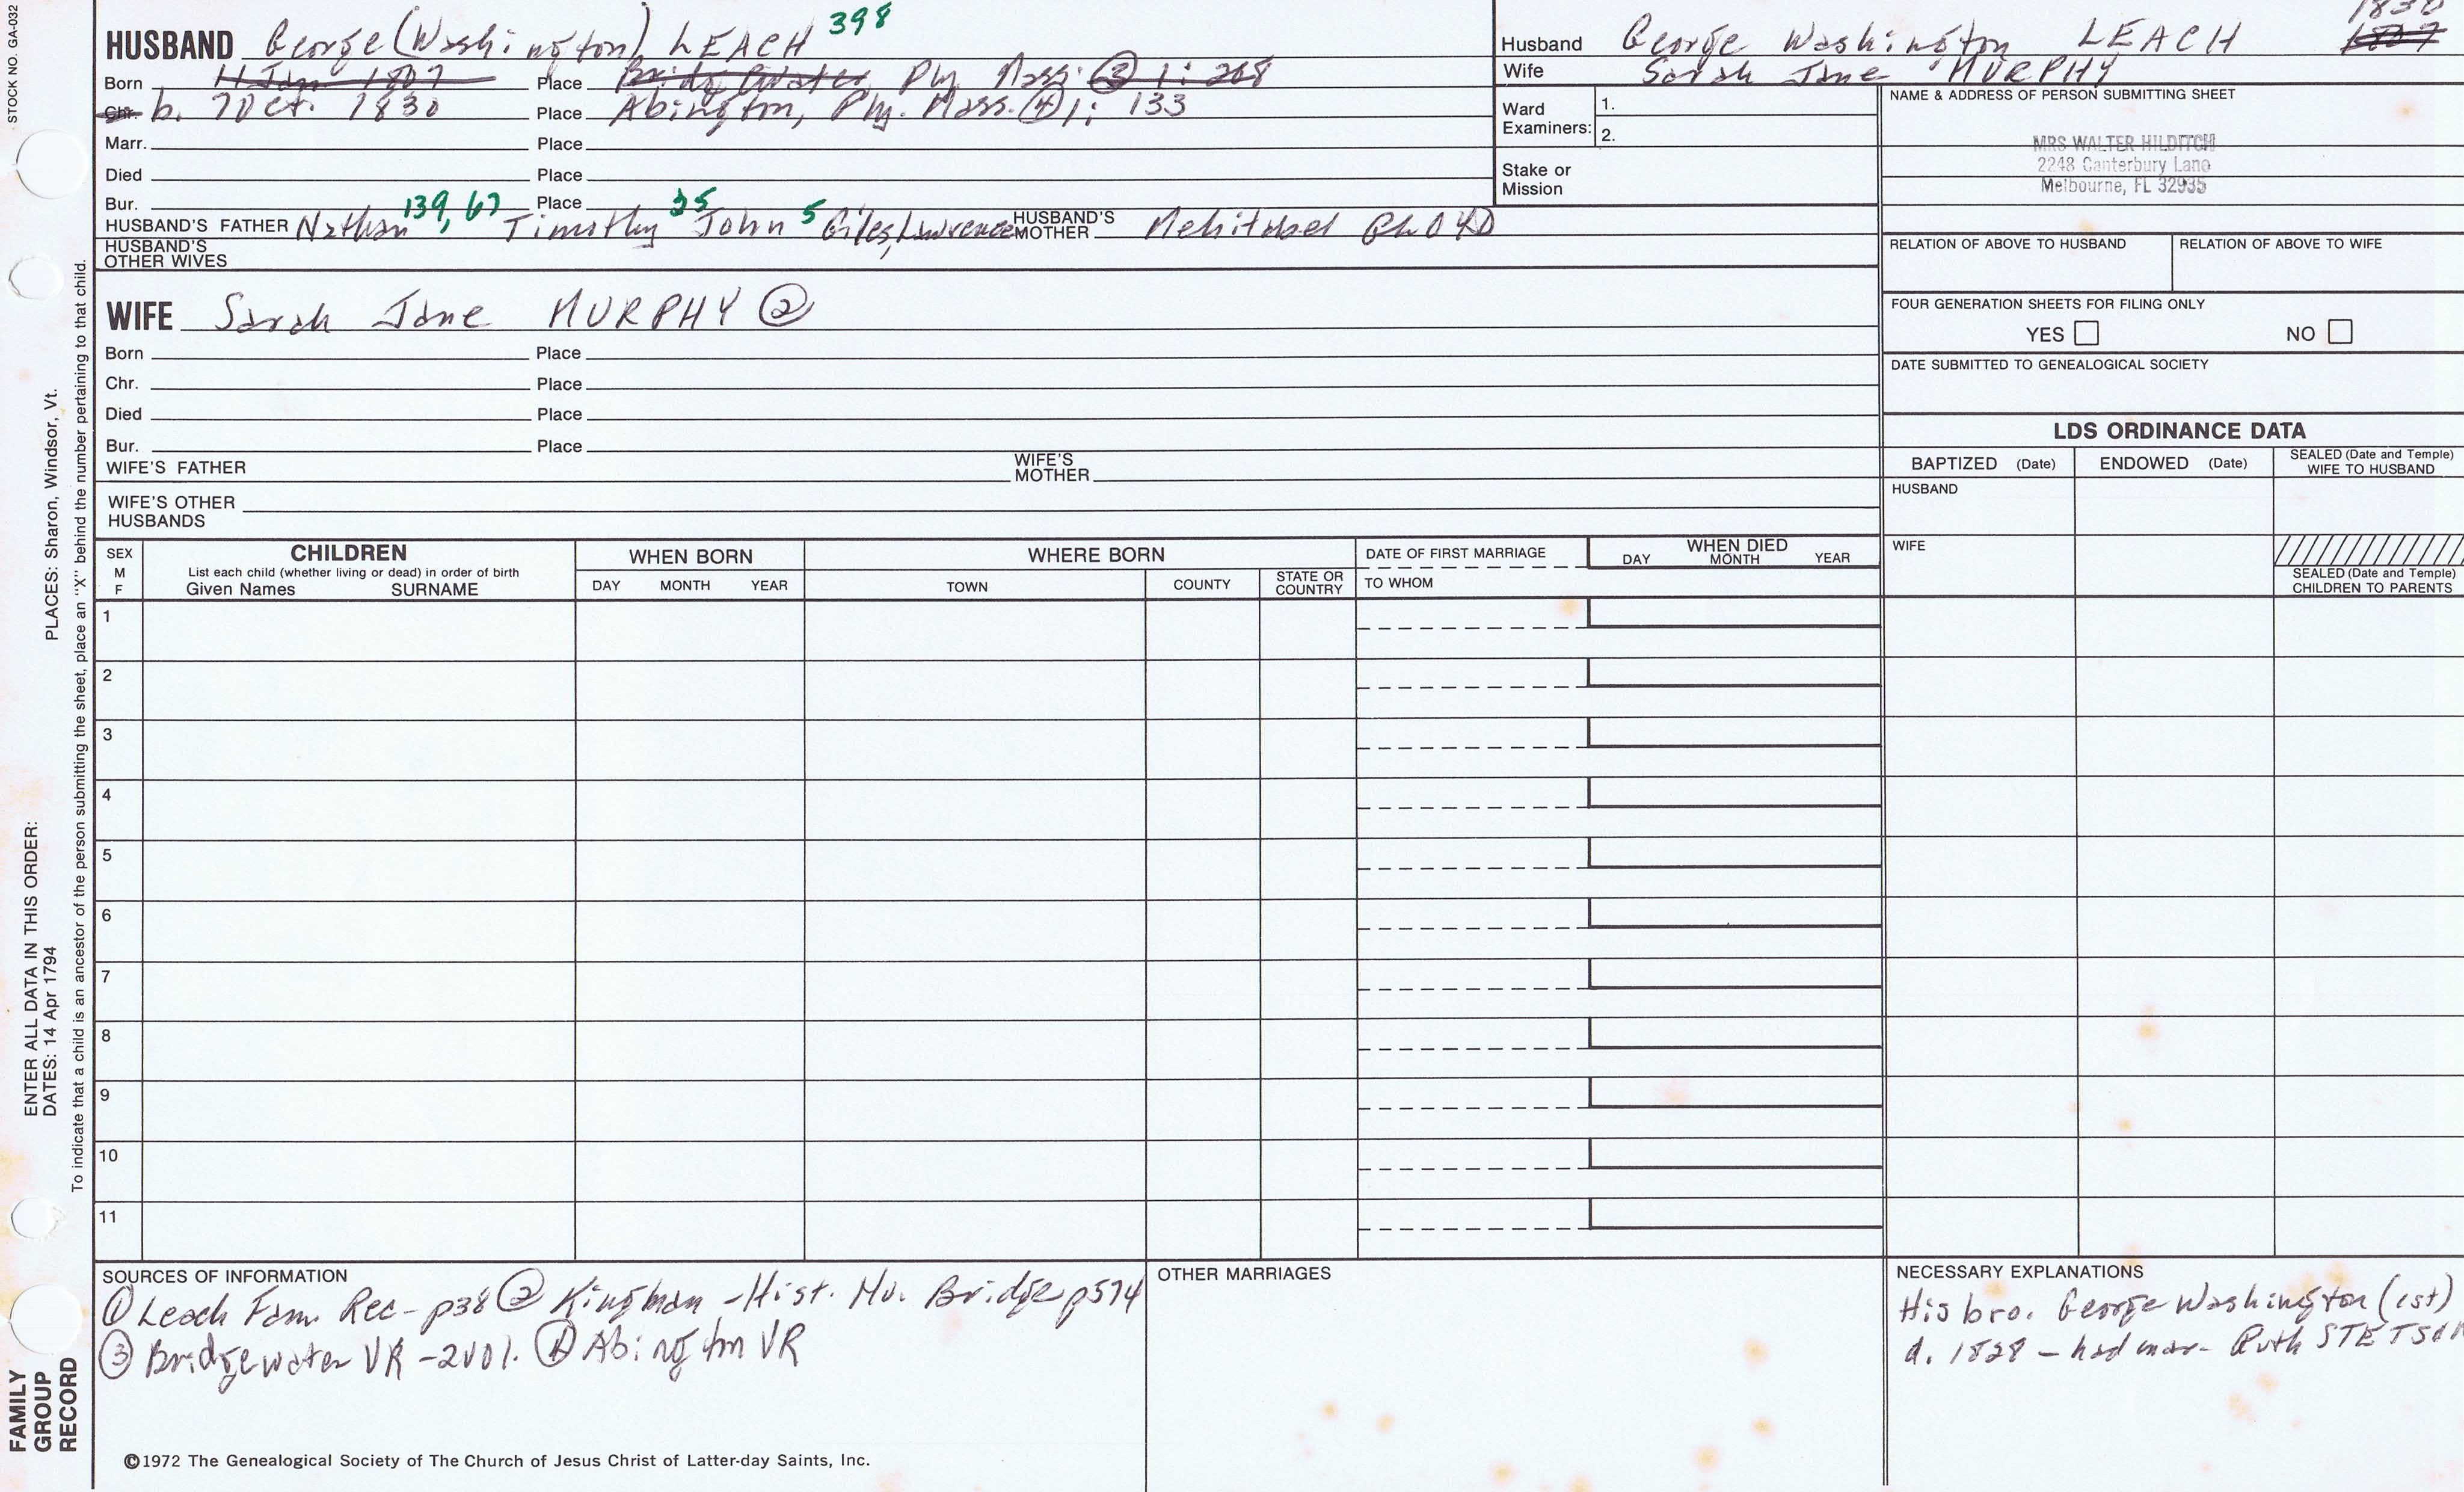 STOCK NO. GA-032
HUSBAND George (Washington) LEACH 398
Born 11 Jan 1807 Place Bridgewater, Ply. Mass. ③ 1: 268
Chr. b. 7 Oct. 1830 Place Abington, Ply. Mass. ④ 1: 133
Marr. Place
Died Place
Bur. Place
HUSBAND'S FATHER Nathan 139, 67 Timothy 25 John 5 Giles, Lawrence HUSBAND'S MOTHER Mehitabel
HUSBAND'S OTHER WIVES
Husband George Washington LEACH 1830 1807
Wife Sarah Jane MURPHY
Ward Examiners: 1.
2.
Stake or Mission
NAME & ADDRESS OF PERSON SUBMITTING SHEET
MRS WALTER HILDITCH
2248 Canterbury Lane
Melbourne, FL 32935
RELATION OF ABOVE TO HUSBAND RELATION OF ABOVE TO WIFE
FOUR GENERATION SHEETS FOR FILING ONLY
YES NO
DATE SUBMITTED TO GENEALOGICAL SOCIETY
WIFE Sarah Jane MURPHY ②
Born Place
Chr. Place
Died Place
Bur. Place
WIFE'S FATHER WIFE'S MOTHER
WIFE'S OTHER HUSBANDS
LDS ORDINANCE DATA
BAPTIZED (Date) ENDOWED (Date) SEALED (Date and Temple) WIFE TO HUSBAND
HUSBAND
WIFE
SEALED (Date and Temple) CHILDREN TO PARENTS
SEX M F
CHILDREN
List each child (whether living or dead) in order of birth
Given Names SURNAME
WHEN BORN
DAY MONTH YEAR
WHERE BORN
TOWN COUNTY STATE OR COUNTRY
DATE OF FIRST MARRIAGE
TO WHOM
WHEN DIED
DAY MONTH YEAR
1
2
3
4
5
6
7
8
9
10
11
SOURCES OF INFORMATION
① Leach Fam. Rec - p38 ② Kingman - Hist. No. Bridge p574
③ Bridgewater VR - 2vol. ④ Abington VR
OTHER MARRIAGES
NECESSARY EXPLANATIONS
His bro. George Washington (1st)
d. 1828 - had mar- Ruth STETSON
©1972 The Genealogical Society of The Church of Jesus Christ of Latter-day Saints, Inc.
PLACES: Sharon, Windsor, Vt.
ENTER ALL DATA IN THIS ORDER:
DATES: 14 Apr 1794
To indicate that a child is an ancestor of the person submitting the sheet, place an "X" behind the number pertaining to that child.
FAMILY
GROUP
RECORD